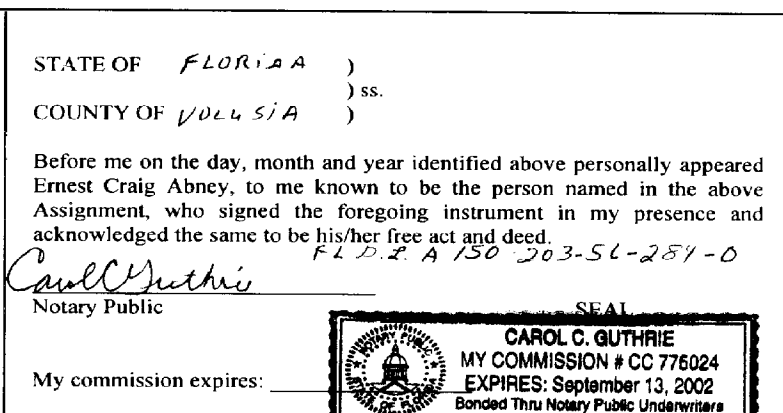 STATE OF FLORiDA )
) ss.
COUNTY OF VOLuSiA )
Before me on the day, month and year identified above personally appeared
Ernest Craig Abney, to me known to be the person named in the above
Assignment, who signed the foregoing instrument in my presence and
acknowledged the same to be his/her free act and deed.
FL D.L. A 150 203-56-284-0
Carol C Guthrie
Notary Public SEAL
CAROL C. GUTHRIE
MY COMMISSION # CC 775024
EXPIRES: September 13, 2002
Bonded Thru Notary Public Underwriters
NOTARY PUBLIC
STATE OF FLORIDA
My commission expires: